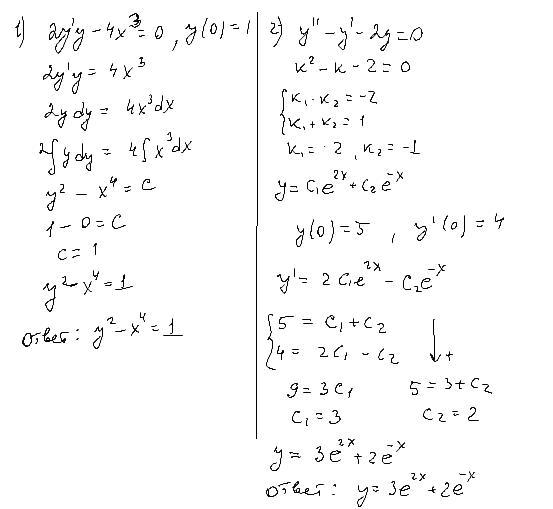 1) 2y'y - 4x³ = 0 , y(0) = 1
2y'y = 4x³
2y dy = 4x³dx
2∫y dy = 4∫x³dx
y² - x⁴ = C
1 - 0 = C
C = 1
y² - x⁴ = 1
Ответ: y² - x⁴ = 1
2) y'' - y' - 2y = 0
к² - к - 2 = 0
{ к₁ · к₂ = -2
к₁ + к₂ = 1
к₁ = 2 , к₂ = -1
y = C₁e²ˣ + C₂e⁻ˣ
y(0) = 5 , y'(0) = 4
y' = 2C₁e²ˣ - C₂e⁻ˣ
{ 5 = C₁ + C₂
4 = 2C₁ - C₂ ↓+
9 = 3C₁ 5 = 3 + C₂
C₁ = 3 C₂ = 2
y = 3e²ˣ + 2e⁻ˣ
Ответ: y = 3e²ˣ + 2e⁻ˣ